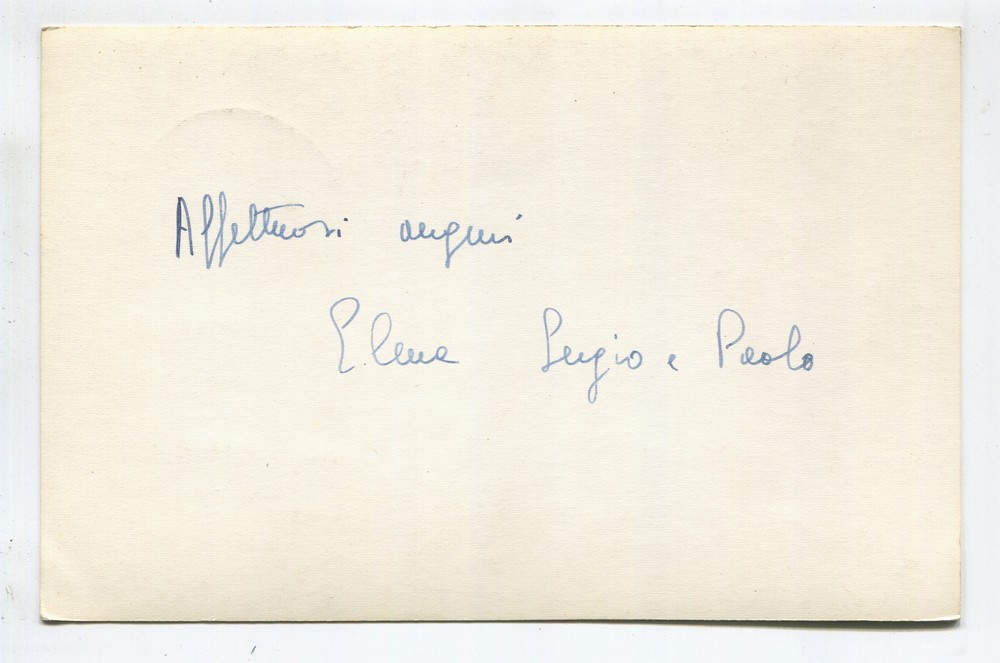 Affettuosi auguri
Elena Sergio e Paolo